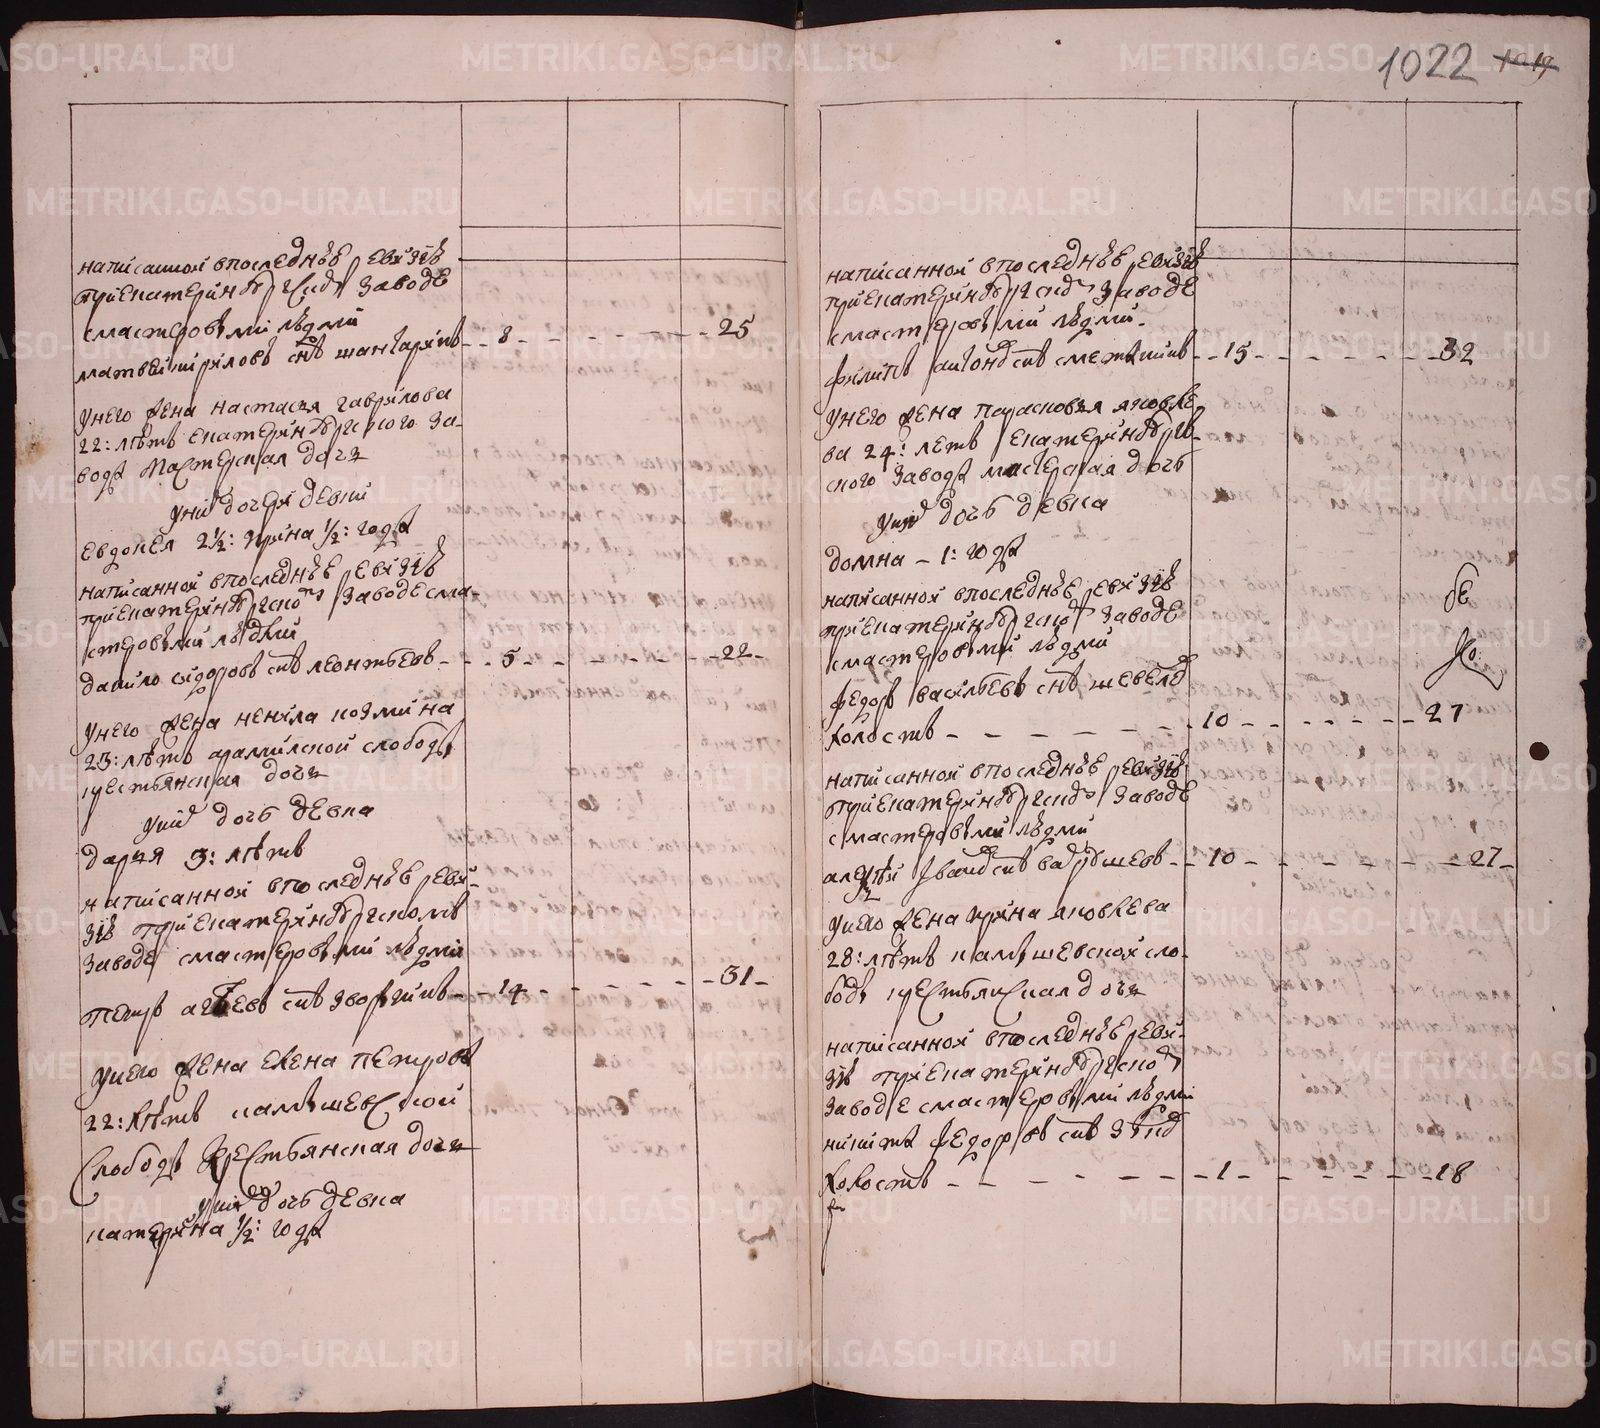 1022 1019
написанной впоследнѣе ревизiѣ
приекатеринбургскомъ заводе
смастеровыми людми
матвей кириловъ снъ шангаринъ - - 8 - - - - - - 25
унего жена настасья гаврилова
22: лѣтъ екатеринбургского за-
вода мастерская дочь
унихъ дочери девки
евдокея 2½: ирина ½: года
написанной впоследнѣе ревизiѣ
приекатеринбургскомъ заводе сма-
стеровыми людми
данило сидоровъ снъ леонтьевъ - - - 5 - - - - - - 22 -
унего жена ненила козмина
23: лѣтъ арамилской слободы
крестьянская дочь
унихъ дочь девка
дарья 3: лѣтъ
написанной впоследнѣе реви-
зiѣ приекатеринбургскомъ
заводе смастеровыми людми
петръ агѣевъ снъ - - 14 - - - - - - 31 -
унего жена елена петрова
22: лѣтъ камышевской
слободы крестьянская дочь
унихъ дочь девка
катерина ½: года
написанной впоследнѣе ревизiѣ
приекатеринбургскомъ заводе
смастеровыми людми
филипъ снъ сметанинъ - - 15 - - - - - - 32
унего жена парасковья яковле-
ва 24: летъ екатеринбург-
ского завода мастерская дочь
унихъ дочь девка
домна - 1: года
написанной впоследнѣе ревизiѣ
приекатеринбургскомъ заводе
смастеровыми людми
федоръ васильевъ снъ шевелевъ
холостъ - - - - - - - 10 - - - - - - 27
написанной впоследнѣе ревизiѣ
приекатеринбургскомъ заводе
смастеровыми людми
алексѣй ивановъ снъ - - 10 - - - - - - 27 -
унего жена ирина яковлева
28: лѣтъ камышевской сло-
боды крестьянская дочь
написанной впоследнѣе реви-
зiѣ приекатеринбургскомъ
заводе смастеровыми людми
никита федоровъ снъ
холостъ - - - - - - - 1 - - - - - - 18